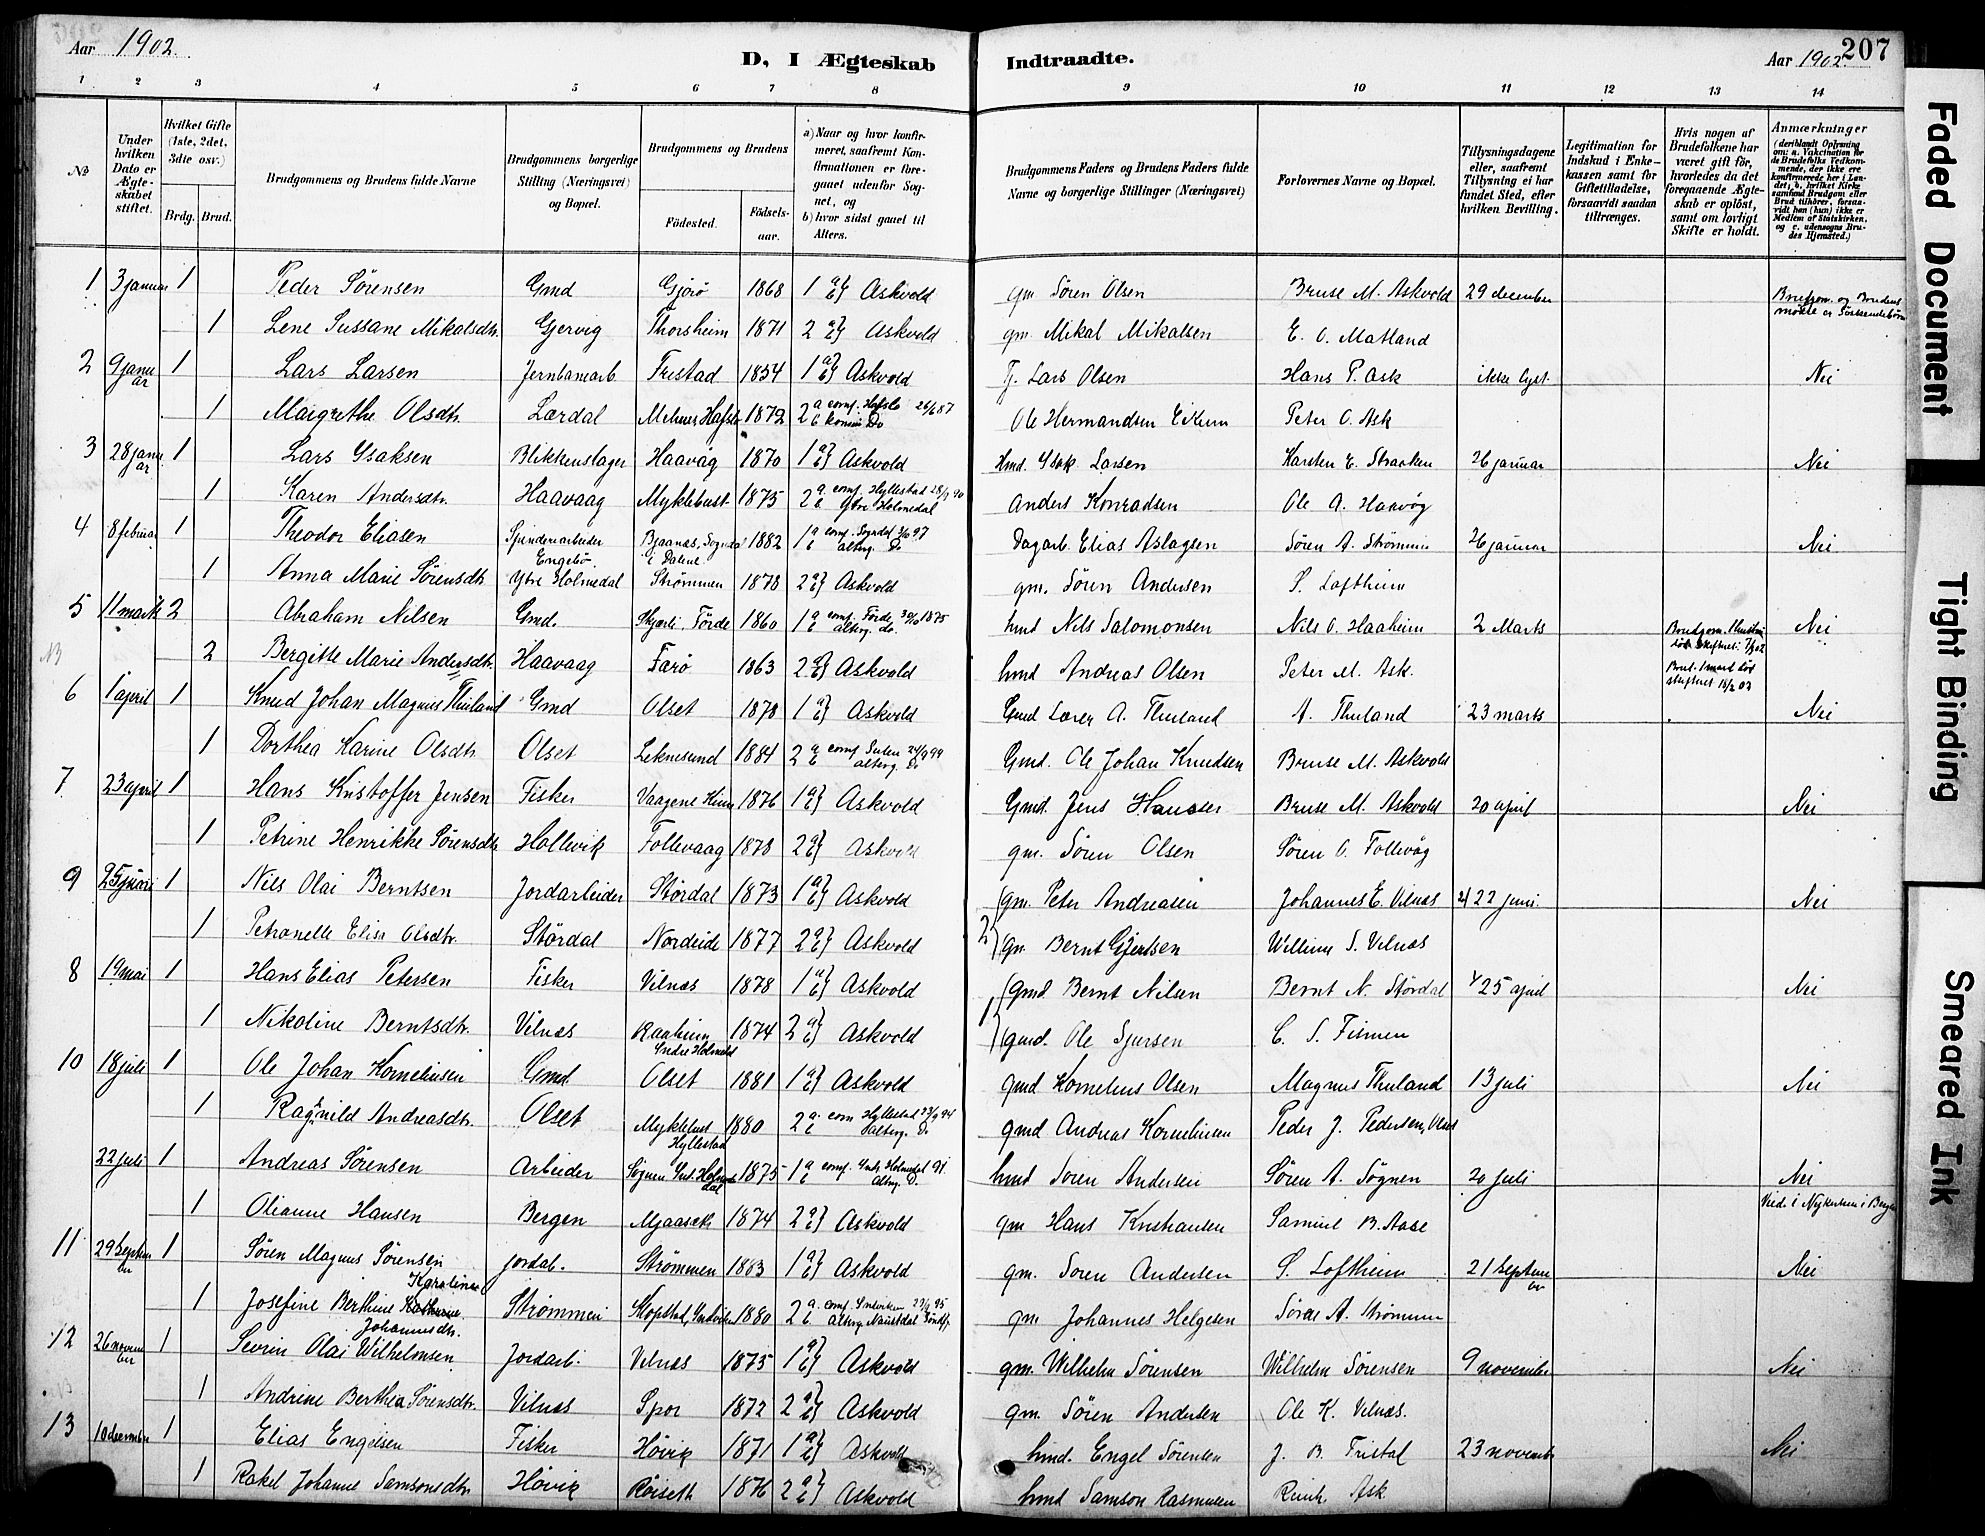 Aar 1902.
D, I Ægteskab Indtraadte.
Aar 1902. 207
1 2 3 4 5 6 7 8 9 10 11 12 13 14
№
Under hvilken Dato er Ægteskabet stiftet.
Hvilket Gifte (1ste, 2det, 3die osv.)
Brdg. Brud.
Brudgommens og Brudens fulde Navne
Brudgommens borgerlige Stilling (Næringsvei) og Bopæl.
Brudgommens og Brudens
Fødested. Fødselsaar.
a) Naar og hvor konfirmeret, saafremt Konfirmationen er foregaaet udenfor Sognet, og
b) hvor sidst gaaet til Alters.
Brudgommens Faders og Brudens Faders fulde Navne og borgerlige Stillinger (Næringsvei)
Forlovernes Navne og Bopæl.
Tillysningsdagene eller, saafremt Tillysning ei har fundet Sted, efter hvilken Bevilling.
Legitimation for Indskud i Enkekassen samt for Giftetilladelse, forsaavidt saadan tiltrænges.
Hvis nogen af Brudefolkene har været gift før, hvorledes da det foregaaende Ægteskab er opløst, samt om lovligt Skifte er holdt.
Anmærkninger (deriblandt Oplysning om: a. Vakcination for de Brudefolks Vedkommende, der ikke ere konfirmerede her i Landet; b. hvilket Kirkesamfund Brudgom eller Brud tilhører, forsaavidt han (hun) ikke er Medlem af Statskirken, og c. udensogns Brudes Hjemsted.)
1 3 januar 1 Peder Sørensen Gmd Gjørø 1868 1 a b} Askvold gm Søren Olsen Bruse M. Askvold 29 december Brudgom. og Brudens
1 Lene Sussane Mikalsdtr. Gjervig Thorsheim 1871 2 a b} Askvold gm. Mikal Mikalsen E. O. Matland
2 9 januar 1 Lars Larsen Jernbanearb. Fristad 1854 1 a b} Askvold Tj. Lars Olsen Hans P. Ask ikke lyst Nei
1 Margrethe Olsdtr. Lærdal Hafslo 1872 2 a conf. Hafslo 26/6 87 b Do Ole Hermandsen Eikum Peter O. Ask
3 28 januar 1 Lars Ysaksen Blikkenslager Haavåg 1870 1 a b} Askvold Hmd. Ysak Larsen Karsten E. Straaken 26 januar Nei
1 Karen Andersdtr. Haavaag Myklebust 1875 2 a. conf. Hyllestad b Ytre Holmedal Anders Konradsen Ole A. Haavåg
4 8 februar 1 Theodor Eliasen Spinderiarbeider Engebø. Bjaanæs, Sogndal i Dalene 1882 1 a conf. Sogndal 97 b alterg. Do Dagarb. Elias Aslagsen Søren A. Strømmen 26 januar Nei
1 Anna Marie Sørensdtr Ytre Holmedal Strømmen 1878 2 a b} Askvold gm. Søren Andersen S. Loftheim
5 11 marts 2 Abraham Nilsen Gmd. Førde 1860 1 a conf. Førde 1875 b alterg. do. hmd Nils Salomonsen Nils O. Haaheim 2 Marts Nei
NB 2 Bergitte Marie Andersdtr. Haavaag Farø 1863 2 a b} Askvold hmd Andreas Olsen Peter M. Ask.
6 1 april 1 Knud Johan Magnus Thuland Gmd Olset 1878 1 a b} Askvold Gmd Lærer A. Thuland A. Thuland 23 marts Nei
1 Dorthea Karine Olsdtr. Olset Leknesund 1884 2 a conf. Sulen 24/9 99 b alterg. Do Gmd. Ole Johan Knudsen Bruse M. Askvold
7 23 april 1 Hans Kristoffer Jensen Fisker Vaagene Kinn 1876 1 a b} Askvold Gmd. Jens Hansen Bruse M. Askvold 20 april Nei
1 Petrine Henrikke Sørensdtr Hollevik Follevaag 1878 2 a b} Askvold gm. Søren Olsen Søren O. Follevåg
9 25 juni 1 Nils Olai Berntsen Jordarbeider Størdal 1873 1 a b} Askvold gm. Peter Andreasen Johannes E. Vilnæs 2) 22 juni Nei
1 Petronelle Elise Olsdtr. Størdal Nordeide 1877 2 a b} Askvold 2} gm Bernt Gjertsen Willum S. Vilnæs
8 19 mai 1 Hans Elias Petersen Fisker Vilnæs 1878 1 a b} Askvold gmd Bernt Nilsen Bernt N. Størdal 25 april Nei
1 Nikoline Berntsdtr. Vilnæs Raaheim Indre Holmedal 1874 2 a b} Askvold 1} gmd. Ole Sjursen C. S. Fismen
10 18 juli 1 Ole Johan Korneliusen Gmd. Olset 1881 1 a b} Askvold gmd Kornelius Olsen Magnus Thuland 13 juli Nei
1 Ragnild Andreasdtr. Olset Myklebust Hyllestad 1880 2 a. conf Hyllestad 23/9 94 b alterg. Do gmd Andreas Korneliusen Peder J. Pedersen, Olset
22 juli 1 Andreas Sørensen Arbeider Sognen Ind. Holmedal 1875 1 a conf. Indr. Holmedal 91. b alterg. D. hmd Søren Andersen Søren A. Sognen 20 juli Nei
1 Olianne Hansen Bergen Mjaaseth 1874 2 a b} Askvold gm Hans Kristiansen Samuel B. Aase Vied i Nykirken i Bergen
11 29 september 1 Søren Magnus Sørensen Jordab. Strømmen 1883 1 a b} Askvold gm. Søren Andersen S. Loftheim 21 september Nei
1 Josefine Berthine Karoline Johannesdtr. Strømmen Hopstad, Indviken 1880 2 a. conf. Indviken 95 b. alterg. Naustdal Søndfj. gm Johannes Helgesen Søren A. Strømmen
12 26 november 1 Sevrin Olai Wilhelmsen Jordarb. Vilnæs 1875 1 a b} Askvold gm. Wilhelm Sørensen Wilhelm Sørensen 9 november Nei
1 Andrine Berthea Sørensdtr. Vilnæs Spor 1872 2 a b} Askvold gm. Søren Andersen Ole K. Vilnæs.
13 10 december 1 Elias Engelsen Fisker Høvik 1871 1 a b} Askvold hmd. Engel Sørensen J. B. Fristal 23 november Nei
1 Rakel Johanne Samsonsdtr. Høvik Røiseth 1876 2 a b} Askvold hmd Samson Rasmusen Reinh. Ask
Faded Document
Tight Binding
Smeared Ink